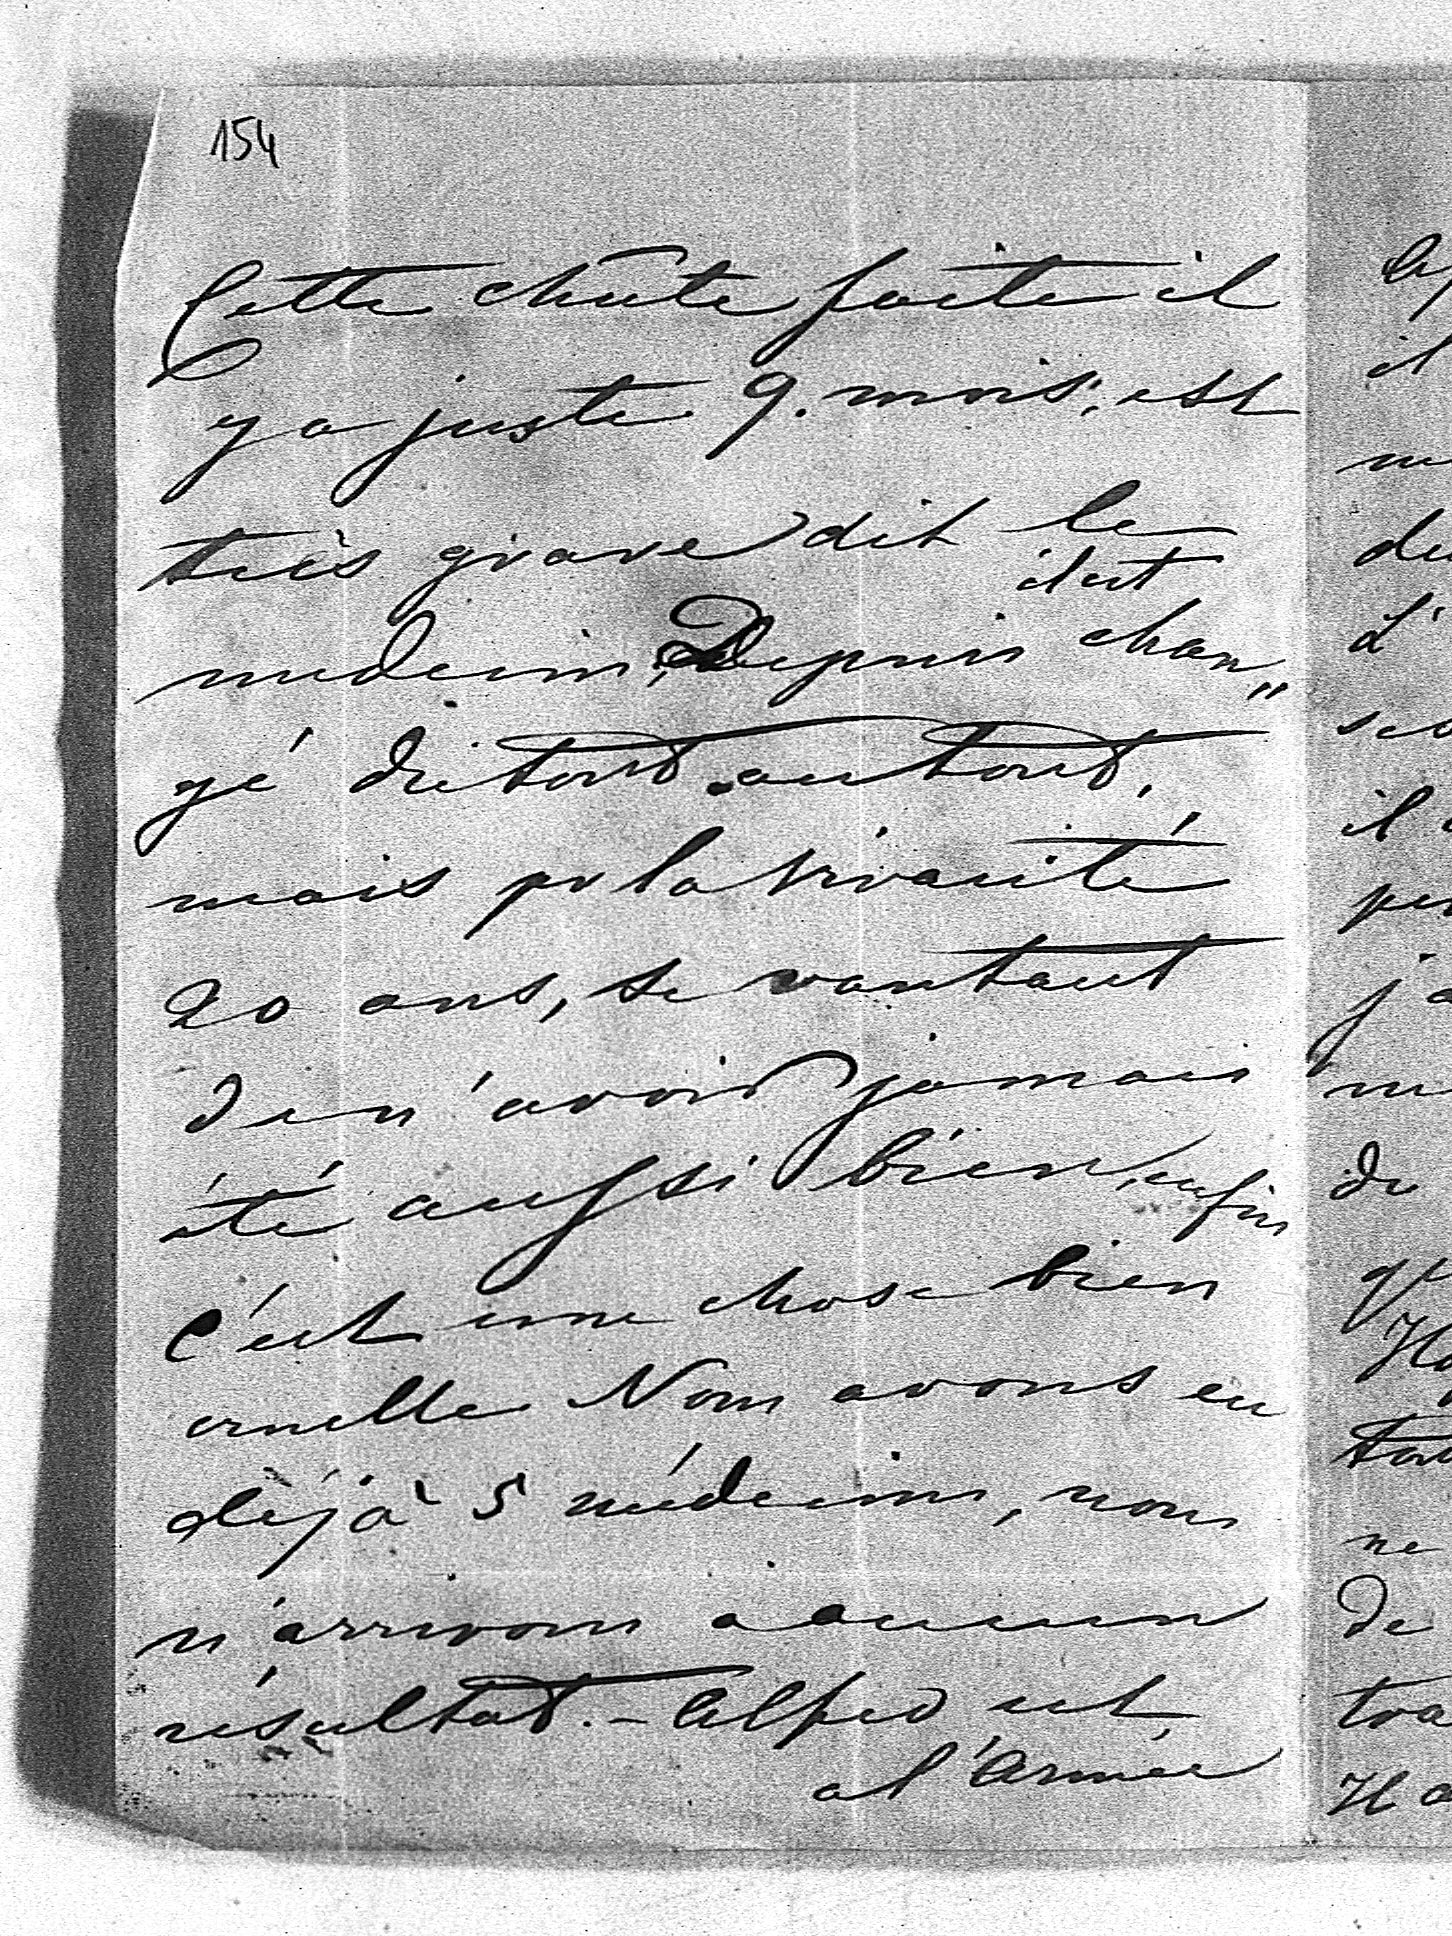 154
Cette chute faite il
y a juste 9. mois, est
très grave dit le
médecin, Depuis c'est chan„
gé du tout au tout,
mais pr la vivacité
20 ans, se vantant
de n'avoir jamais
été aussi bien, enfin
c'est une chose bien
cruelle Nous avons eu
dèjà 5 médecins, nous
n'arrivons a aucun
résultat. – Alfred est
a l'Armée